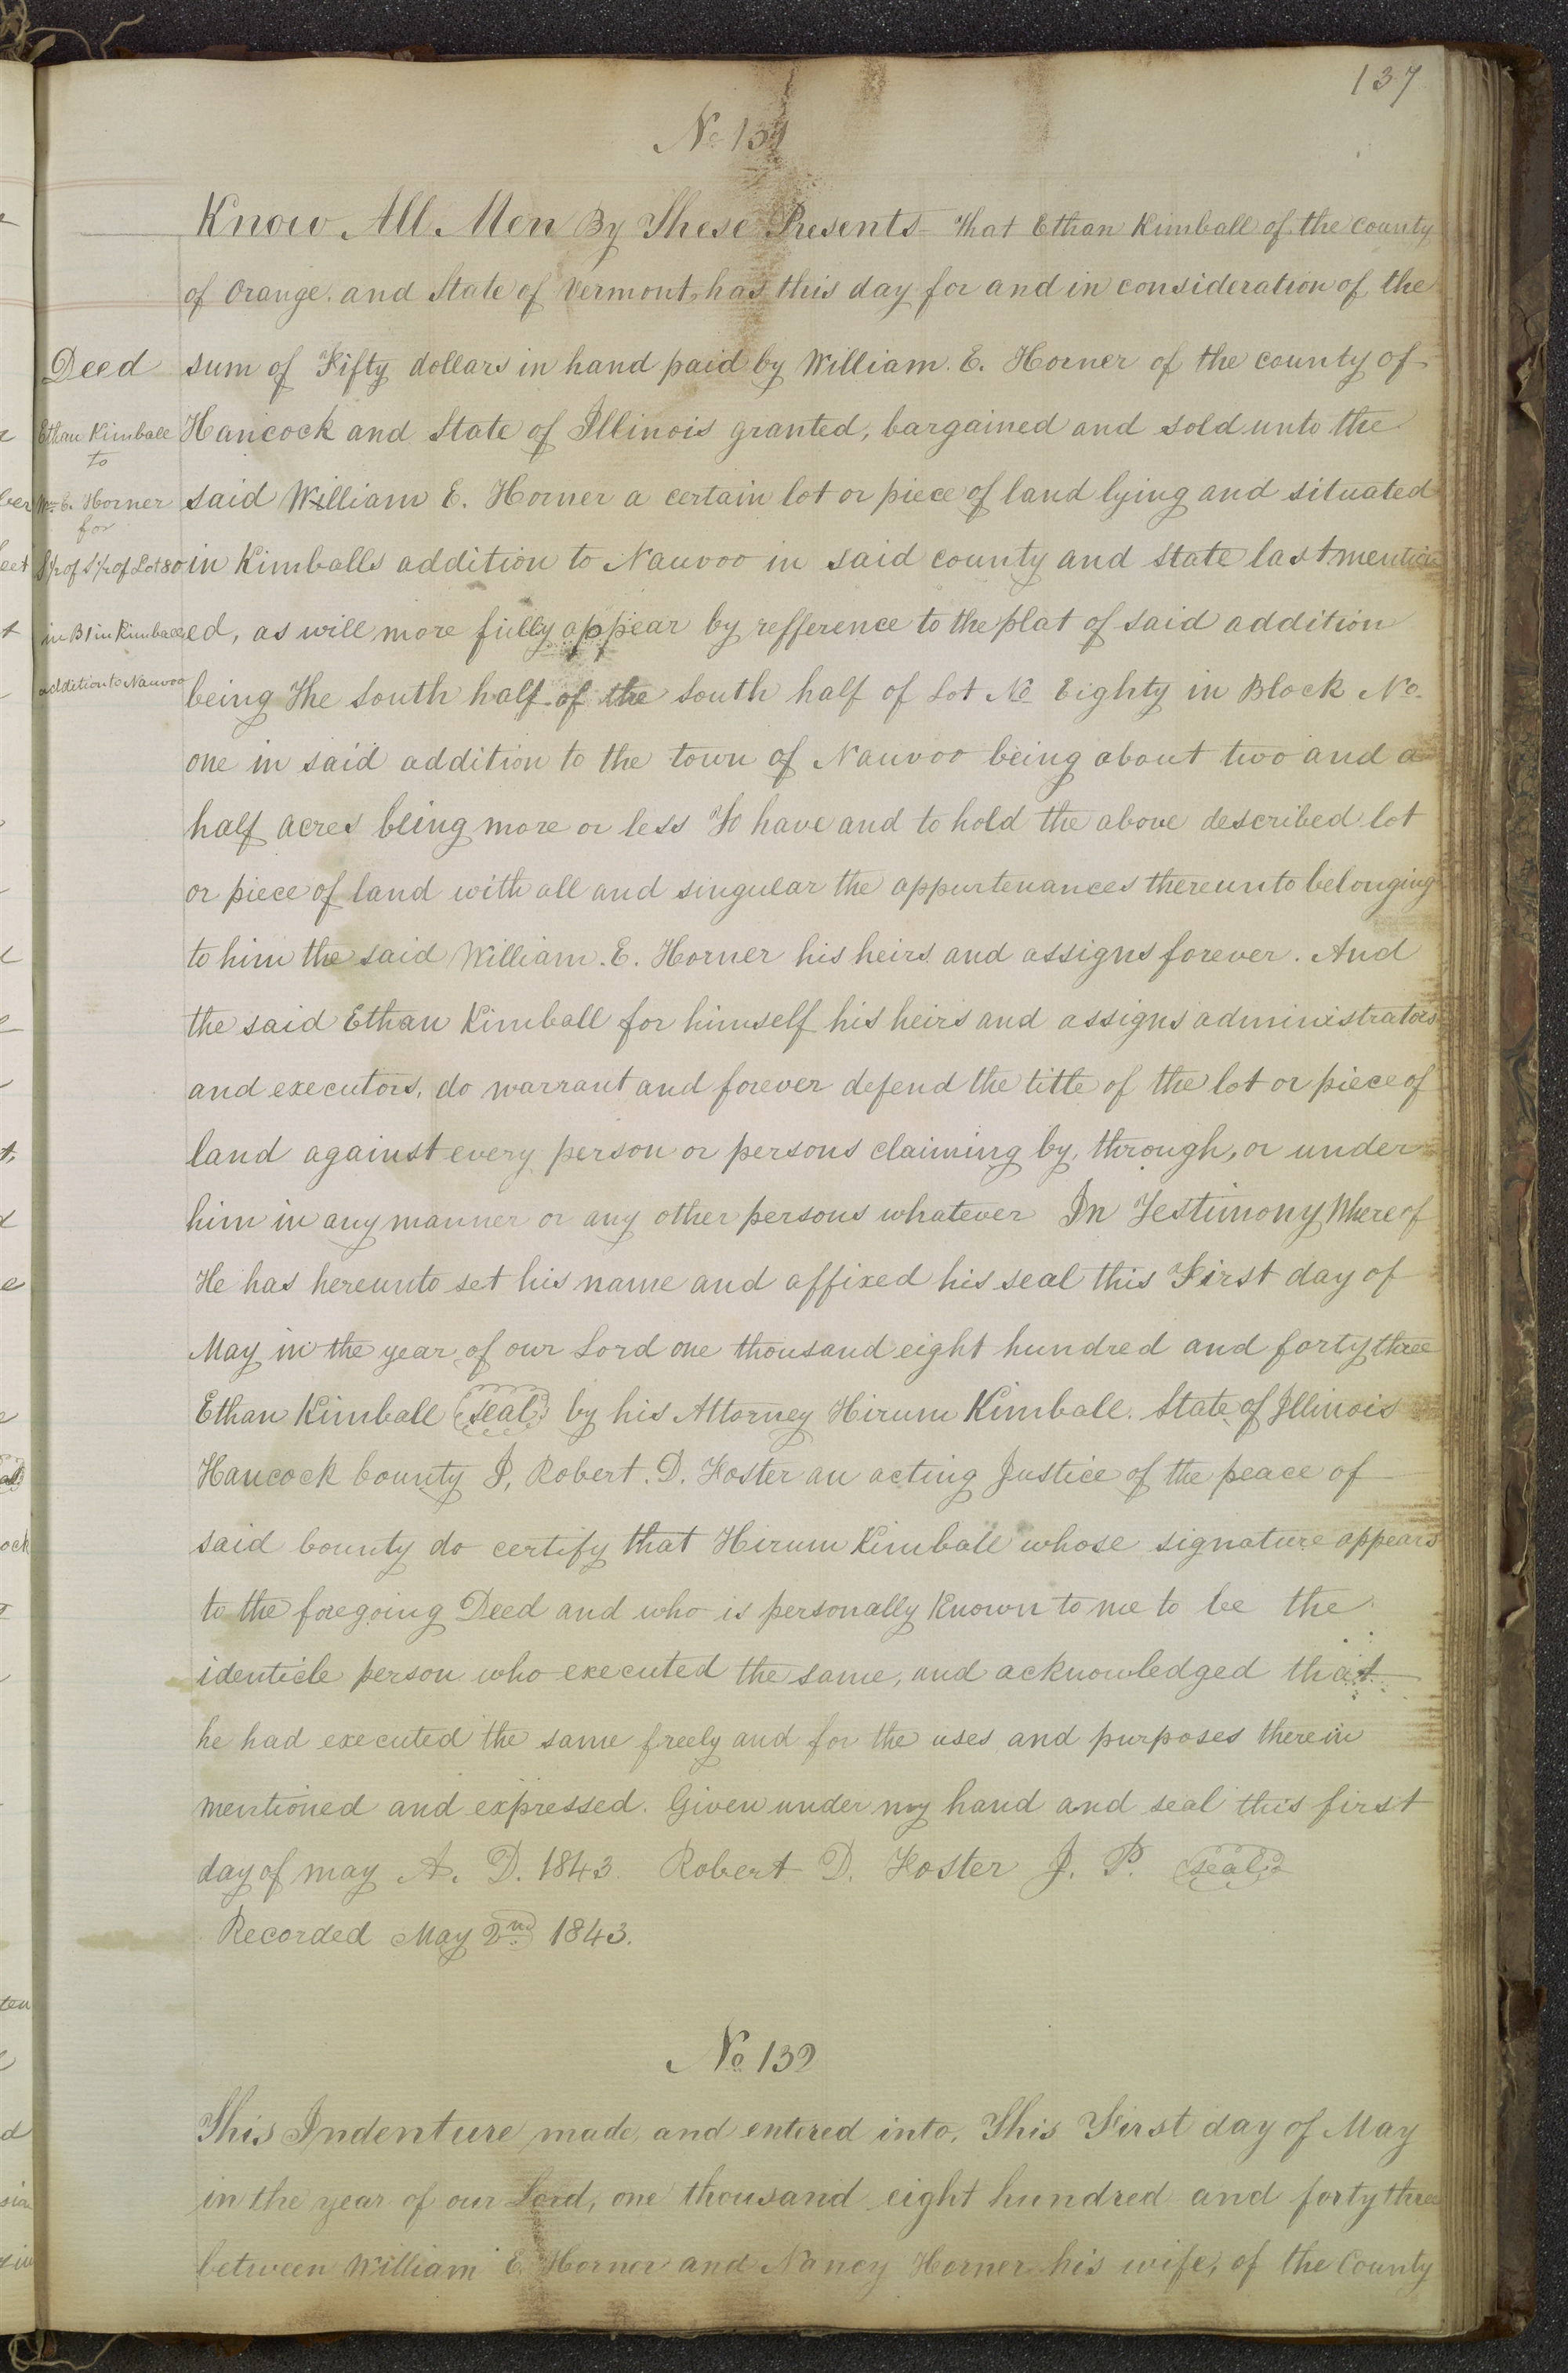 137
No 131
Know All Men By These Presents That Ethan Kimball of the county
of Orange. and State of Vermont, has this day for and in consideration of the
Deed
sum of Fifty dollars in hand paid by William. E. Horner of the county of
Ethan Kimball
to
Hancock and State of Illinois granted, bargained and sold unto the
Wm E. Horner
for
said William E. Horner a certain lot or piece of land lying and situated
S½ of S½ of Lot 80
in Kimballs addition to Nauvoo in said county and State last mention
in B1 in Kimballs
ed, as will more fully appear by refference to the plat of said addition
addition to Nauvoo
being The South half of the South half of Lot No Eighty in Block No.
one in said addition to the town of Nauvoo being about two and a
half acres being more or less To have and to hold the above described lot
or piece of land with all and singular the appurtenances thereunto belonging
to him the said William. E. Horner his heirs and assigns forever. And
the said Ethan Kimball for himself his heirs and assigns administrators
and executors, do warrant and forever defend the title of the lot or piece of
land against every person or persons claiming by, through, or under
him in any manner or any other persons whatever In Testimony Whereof
He has hereunto set his name and affixed his seal this First day of
May in the year of our Lord one thousand eight hundred and forty three
Ethan Kimball (seal) by his Attorney Hirum Kimball. State of Illinois
Hancock County I, Robert. D. Foster an acting Justice of the peace of
said County do certify that Hirum Kimball whose signature appears
to the foregoing Deed and who is personally Known to me to be the
identicle person who executed the same, and acknowledged that
he had executed the same freely and for the uses and purposes therein
mentioned and expressed. Given under my hand and seal this first
day of may A. D. 1843. Robert D. Foster J. P. (seal)
Recorded May 2nd 1843.
No 132
This Indenture made, and entered into, This First day of May
in the year of our Lord, one thousand eight hundred and forty three
between William E. Horner and Nancy Horner his wife, of the County